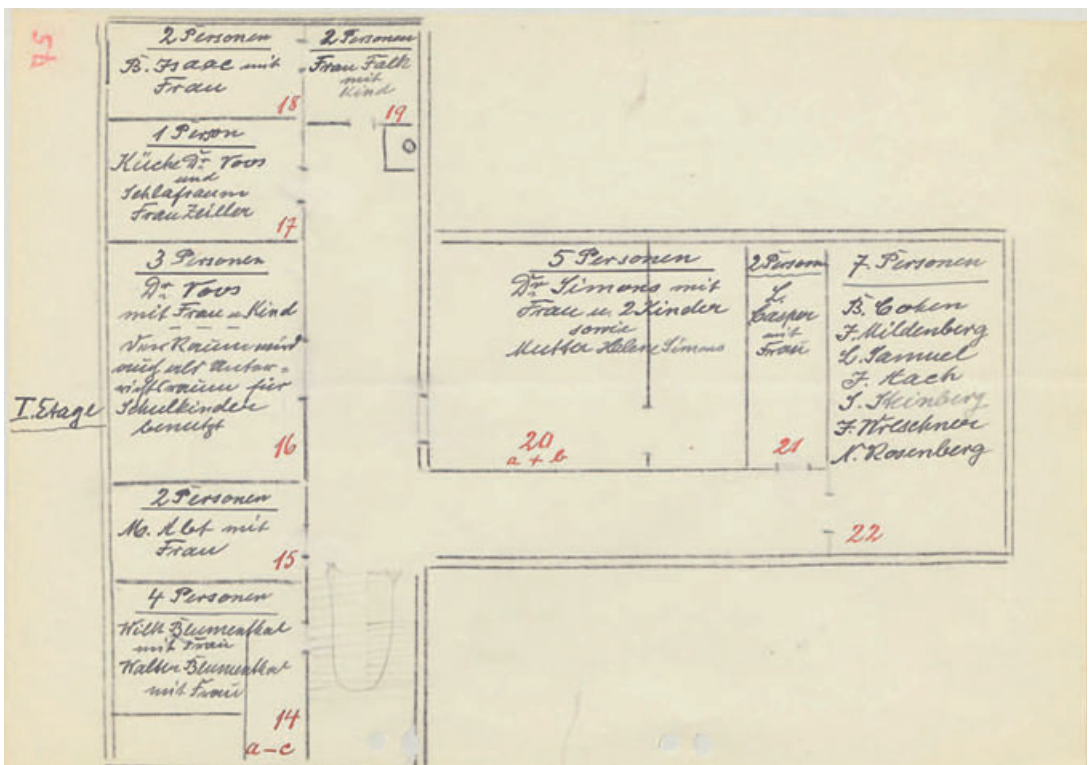 5a
2 Personen
B. Isaac mit
Frau
18
2 Personen
Frau Falk
mit
Kind
19
1 Person
Küche Dr. Voos
und
Schlafraum
Frau Zeiller
17
3 Personen
Dr. Voos
mit Frau u. Kind
Der Raum wird
auch als Unter-
richtsraum für
Schulkinder
benutzt
16
I. Etage
2 Personen
M. Abt mit
Frau
15
4 Personen
Willi Blumenthal
mit Frau
Walter Blumenthal
mit Frau
14
a-c
5 Personen
Dr. Simons mit
Frau u. 2 Kinder
sowie
Mutter Helene Simons
20
a + b
2 Person
L.
Casper
mit
Frau
21
7 Personen
B. Cohen
J. Mildenberg
L. Samuel
J. Hach
S. Steinberg
J. Wreschner
N. Rosenberg
22